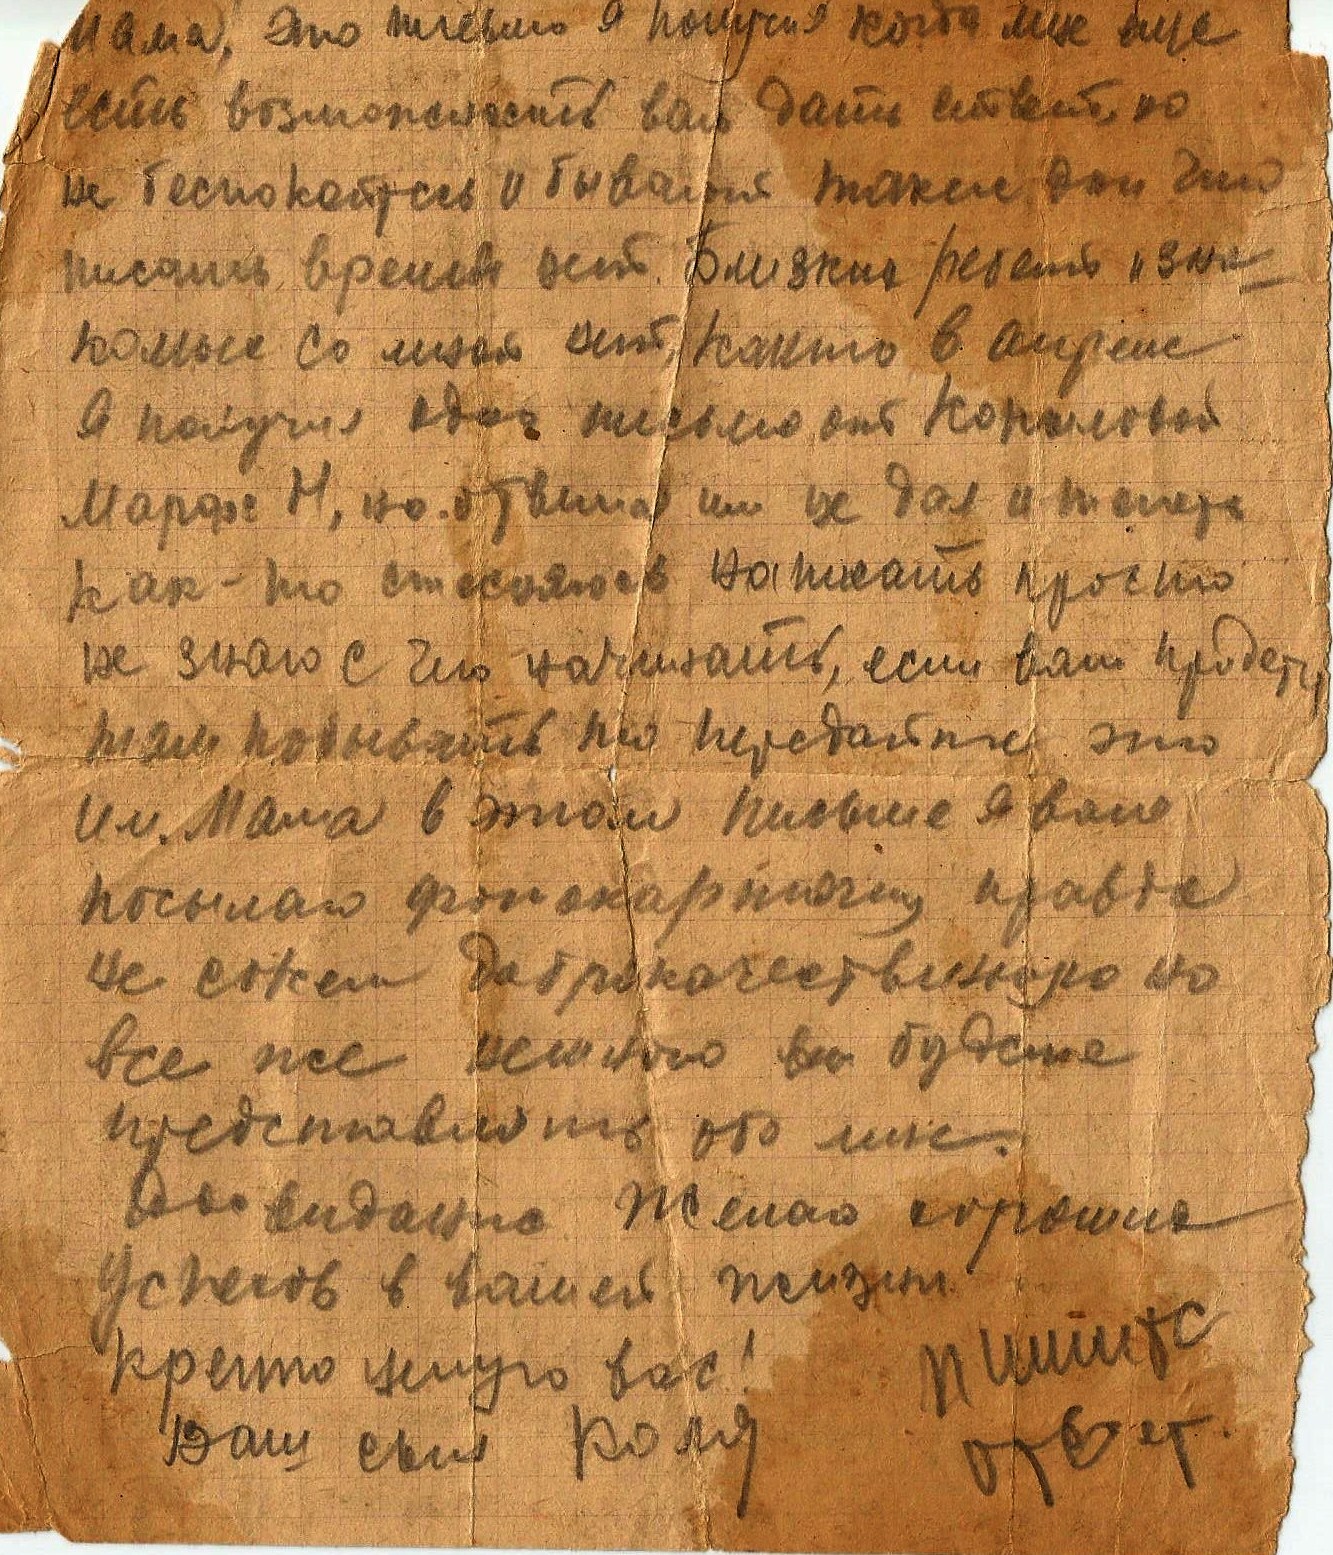 Мама, это письмо я получил когда мне еще
есть возможность вам дать ответ, но
не беспокойтесь и бывают такие дни что
писать время нет. Близких ребят и зна-
комых со мной нет, както в апреле
я получил одно письмо от Корыловой
Марфы Н, но ответа им не дал и теперь
как-то стесняюсь написать просто
не знаю с чего начинать, если вам придет
там побывать то передайте это
им. Мама в этом письме я вам
посылаю фотокарточку правда
не совсем доброкачественную но
все же немного вы будете
представлять обо мне.
До свидания Желаю хороших
успехов в вашей жизни
Крепко целую вас!
Ваш сын Коля
пишите
ответ.